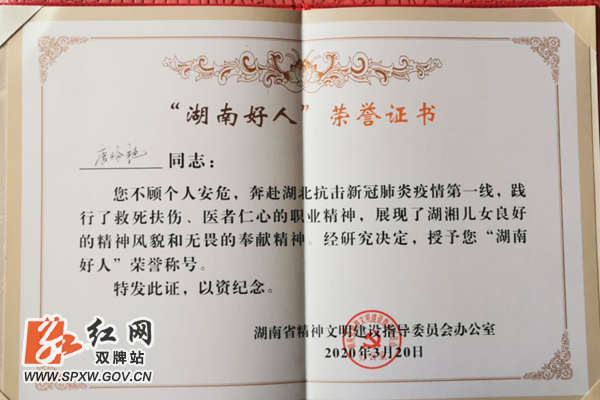 “湖南好人”荣誉证书
同志：
您不顾个人安危，奔赴湖北抗击新冠肺炎疫情第一线，践
行了救死扶伤、医者仁心的职业精神，展现了湖湘儿女良好
的精神风貌和无畏的奉献精神。经研究决定，授予您“湖南
好人”荣誉称号。
特发此证，以资纪念。
湖南省精神文明建设指导委员会办公室
2020年3月20日
红网
双牌站
WWW.SPXW.GOV.CN